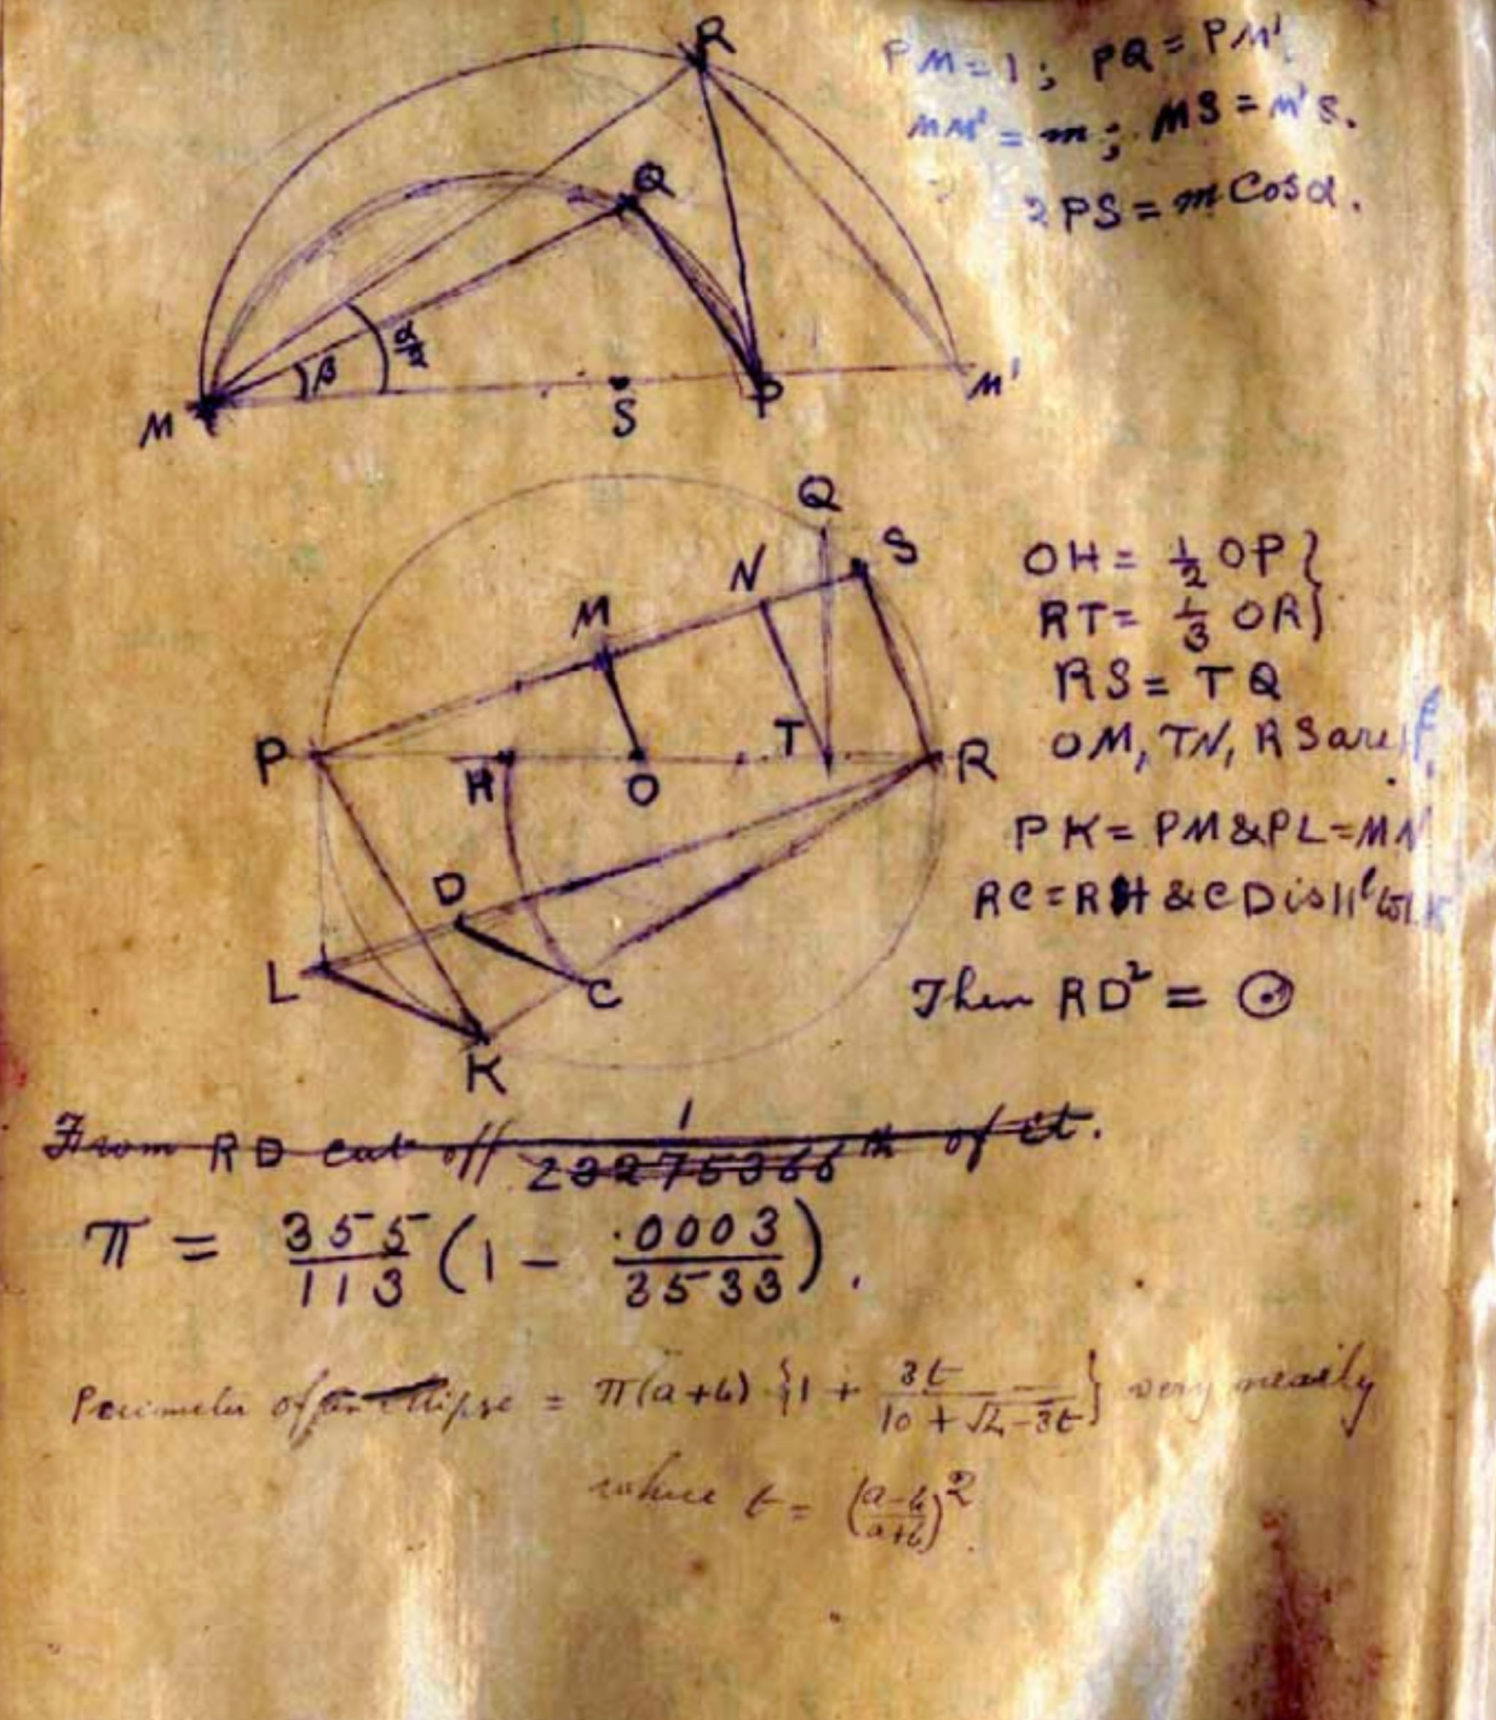 R
PM = 1 ; PQ = PM'.
MM' = m ; MS = M'S.
2PS = m Cos α.
Q
β
α/2
M
S
P
M'
Q
S
N
M
P
H
O
T
R
D
L
C
K
OH = 1/2 OP }
RT = 1/3 OR }
RS = TQ
OM, TN, RS are
PK = PM & PL = MN
RC = RH & CD is ||l
Then RD² = ⊙
From RD cut off 1/23275366 th of it.
π = 355/113 (1 - .0003/3533).
Perimeter of an ellipse = π(a+b) {1 + 3t/(10 + √4-3t)} very nearly
where t = ((a-b)/(a+b))².